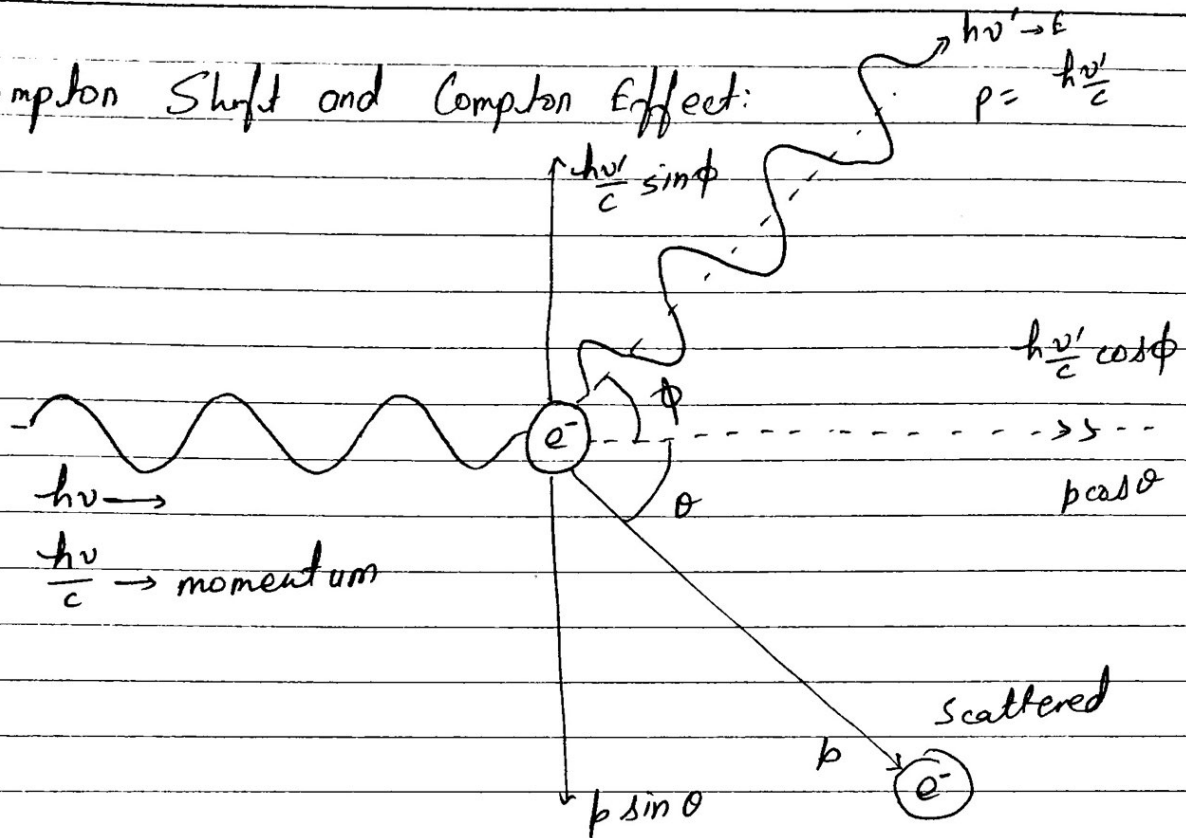 hν' → E
mpton Shift and Compton Effect:
p = hν'/c
hν'/c sinϕ
hν'/c cosϕ
ϕ
e⁻
hν →
θ
p cosθ
hν/c → momentum
scattered
p
e⁻
p sinθ